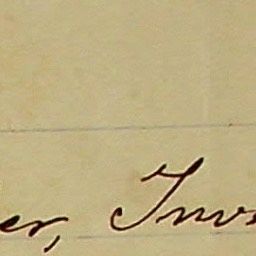 er, Inv